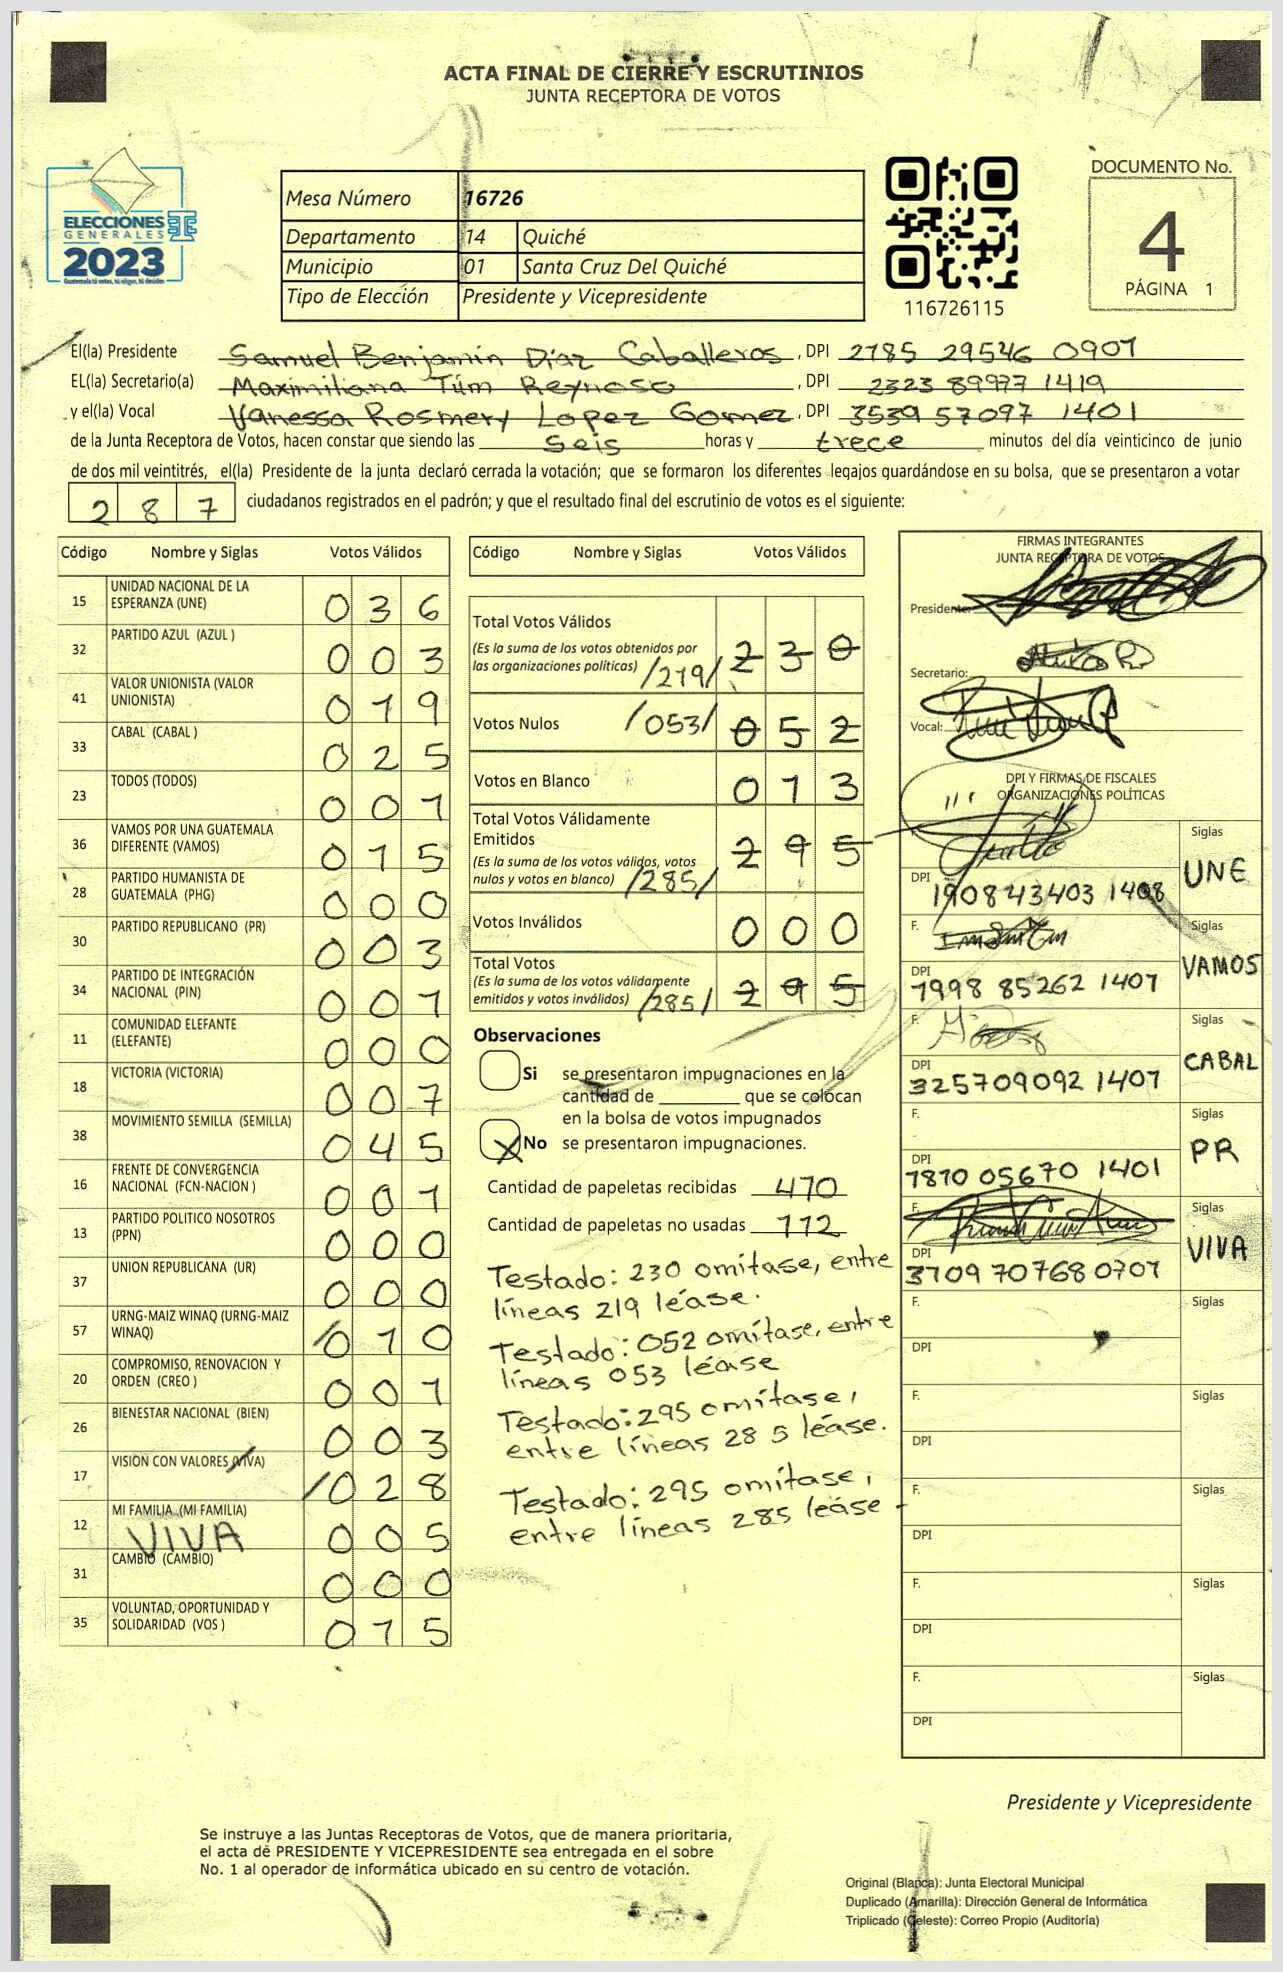 ACTA FINAL DE CIERRE Y ESCRUTINIOS
JUNTA RECEPTORA DE VOTOS
ELECCIONES
GENERALES
2023
Guatemala tú votas, tú eliges, tú decides
Mesa Número 16726
Departamento 14 Quiché
Municipio 01 Santa Cruz Del Quiché
Tipo de Elección Presidente y Vicepresidente
116726115
DOCUMENTO No.
4
PÁGINA 1
El(la) Presidente Samuel Benjamín Díaz Caballeros, DPI 2785 29546 0907
EL(la) Secretario(a) Maximiliana Túm Reynoso, DPI 2323 89977 1419
y el(la) Vocal Vanessa Rosmery Lopez Gomez, DPI 3539 57097 1401
de la Junta Receptora de Votos, hacen constar que siendo las seis horas y trece minutos del día veinticinco de junio
de dos mil veintitrés, el(la) Presidente de la junta declaró cerrada la votación; que se formaron los diferentes legajos guardándose en su bolsa, que se presentaron a votar
287 ciudadanos registrados en el padrón; y que el resultado final del escrutinio de votos es el siguiente:
Código Nombre y Siglas Votos Válidos
15 UNIDAD NACIONAL DE LA ESPERANZA (UNE) 036
32 PARTIDO AZUL (AZUL ) 003
41 VALOR UNIONISTA (VALOR UNIONISTA) 019
33 CABAL (CABAL ) 025
23 TODOS (TODOS) 001
36 VAMOS POR UNA GUATEMALA DIFERENTE (VAMOS) 015
28 PARTIDO HUMANISTA DE GUATEMALA (PHG) 000
30 PARTIDO REPUBLICANO (PR) 003
34 PARTIDO DE INTEGRACIÓN NACIONAL (PIN) 001
11 COMUNIDAD ELEFANTE (ELEFANTE) 000
18 VICTORIA (VICTORIA) 007
38 MOVIMIENTO SEMILLA (SEMILLA) 045
16 FRENTE DE CONVERGENCIA NACIONAL (FCN-NACION ) 001
13 PARTIDO POLITICO NOSOTROS (PPN) 000
37 UNION REPUBLICANA (UR) 000
57 URNG-MAIZ WINAQ (URNG-MAIZ WINAQ) /010
20 COMPROMISO, RENOVACION Y ORDEN (CREO ) 001
26 BIENESTAR NACIONAL (BIEN) 003
17 VISION CON VALORES (VIVA) /028
12 MI FAMILIA (MI FAMILIA) 005
VIVA
31 CAMBIO (CAMBIO) 000
35 VOLUNTAD, OPORTUNIDAD Y SOLIDARIDAD (VOS ) 015
Código Nombre y Siglas Votos Válidos
Total Votos Válidos
(Es la suma de los votos obtenidos por
las organizaciones políticas) /219/ 230
Votos Nulos /053/ 052
Votos en Blanco 013
Total Votos Válidamente
Emitidos
(Es la suma de los votos válidos, votos
nulos y votos en blanco) /285/ 295
Votos Inválidos 000
Total Votos
(Es la suma de los votos válidamente
emitidos y votos inválidos) /285/ 295
Observaciones
Si se presentaron impugnaciones en la
cantidad de ________ que se colocan
en la bolsa de votos impugnados
X No se presentaron impugnaciones.
Cantidad de papeletas recibidas 470
Cantidad de papeletas no usadas 112
Testado: 230 omítase, entre
líneas 219 léase.
Testado: 052 omítase, entre
líneas 053 léase
Testado: 295 omítase,
entre líneas 285 léase.
Testado: 295 omítase,
entre líneas 285 léase
FIRMAS INTEGRANTES
JUNTA RECEPTORA DE VOTOS
Presidente:
Secretario:
Vocal:
DPI Y FIRMAS DE FISCALES
ORGANIZACIONES POLÍTICAS
Siglas UNE
DPI 1908 43403 1408
F. Siglas VAMOS
DPI 1998 85262 1401
F. Siglas CABAL
DPI 325709092 1401
F. Siglas PR
DPI 1870 05670 1401
F. Siglas VIVA
DPI 3109 70768 0701
F. Siglas
DPI
F. Siglas
DPI
F. Siglas
DPI
F. Siglas
DPI
F. Siglas
DPI
Presidente y Vicepresidente
Se instruye a las Juntas Receptoras de Votos, que de manera prioritaria,
el acta de PRESIDENTE Y VICEPRESIDENTE sea entregada en el sobre
No. 1 al operador de informática ubicado en su centro de votación.
Original (Blanca): Junta Electoral Municipal
Duplicado (Amarilla): Dirección General de Informática
Triplicado (Celeste): Correo Propio (Auditoría)